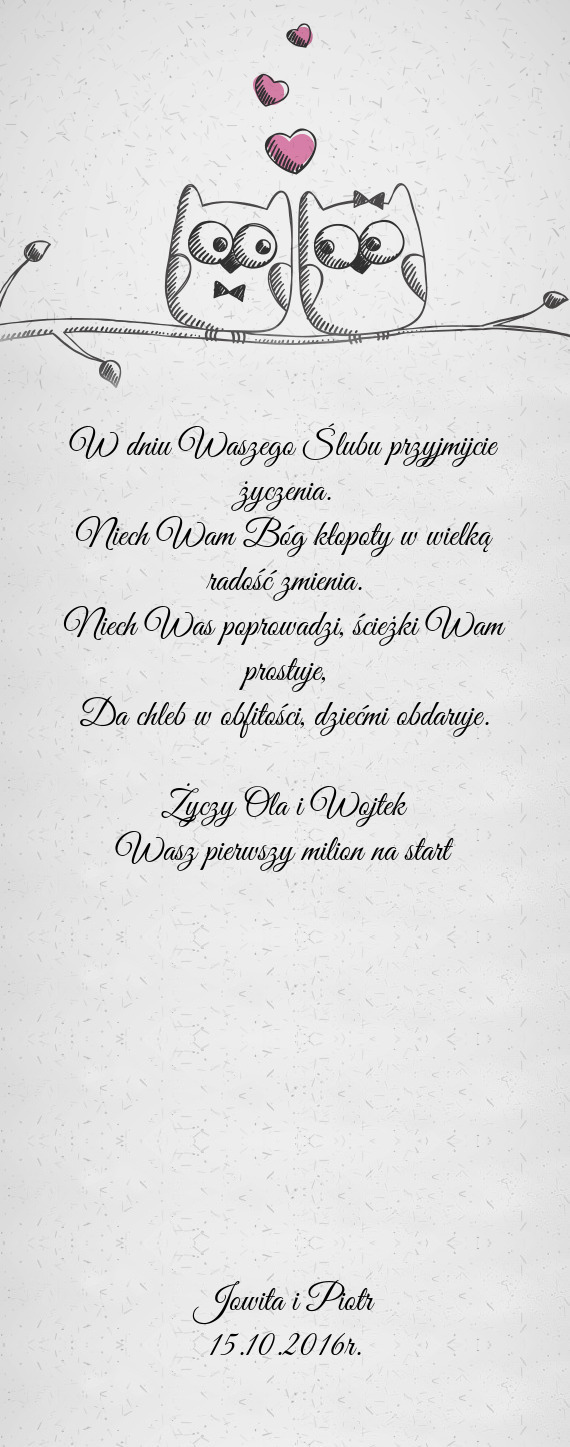 W dniu Waszego Ślubu przyjmijcie
życzenia.
Niech Wam Bóg kłopoty w wielką
radość zmienia.
Niech Was poprowadzi, ścieżki Wam
prostuje,
Da chleb w obfitości, dziećmi obdaruje.
Życzy Ola i Wojtek
Wasz pierwszy milion na start
Jowita i Piotr
15.10.2016r.